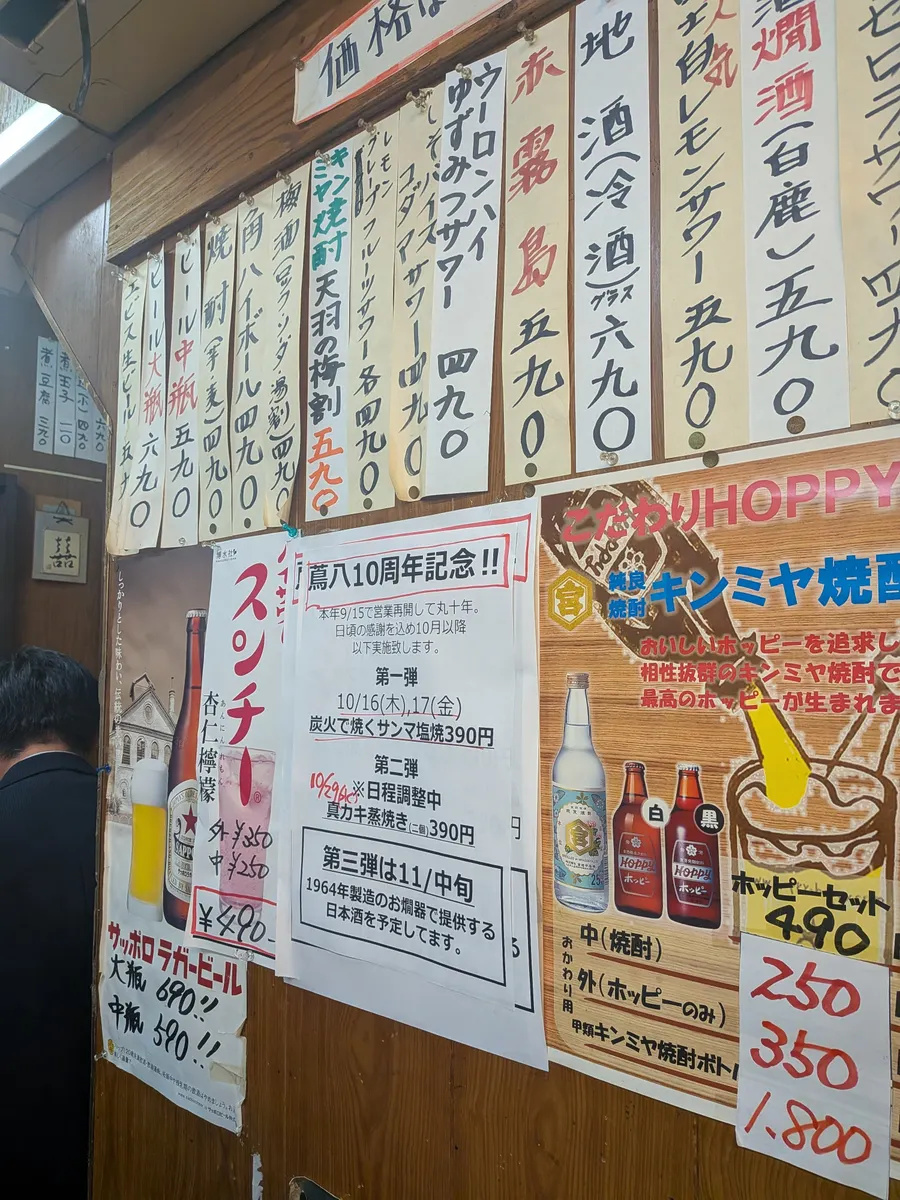 価格は
ウーロンハイ
ゆずみつサワー 四九〇
赤霧島 五九〇
地酒(冷酒)グラス 六九〇
人気
自レモンサワー 五九〇
燗酒(白鹿) 五九〇
エビス生ビール 五九
ビール大瓶 六九〇
ビール中瓶 五九〇
焼酎(芋・麦) 四九〇
角ハイボール 四九〇
梅酒(ロック ソーダ 湯割) 四九〇
キンミヤ焼酎 天羽の梅割 五九〇
レモン
グレープフルーツサワー 各四九〇
サワー 四九〇
煮豆腐 三九〇
煮玉子 一一〇
(小) 四九〇
六九〇
しっかりとした味わい、伝統の
スンチー®
杏仁檸檬
外¥350
中¥250
¥490
サッポロ ラガービール
大瓶 690!!
中瓶 590!!
蔦八10周年記念!!
本年9/15で営業再開して丸十年。
日頃の感謝を込め10月以降
以下実施致します。
第一弾
10/16(木),17(金)
炭火で焼くサンマ塩焼390円
第二弾
※日程調整中
真カキ蒸焼き(二個)390円
第三弾は11/中旬
1964年製造のお燗器で提供する
日本酒を予定してます。
こだわりHOPPY
宮
純良焼酎 キンミヤ焼酎
おいしいホッピーを追求し
相性抜群のキンミヤ焼酎で
最高のホッピーが生まれま
白
黒
HOPPY
ホッピー
HOPPY
ホッピー
ホッピーセット
490
おかわり用
中(焼酎)
250
外(ホッピーのみ)
350
甲類キンミヤ焼酎ボトル
1.800